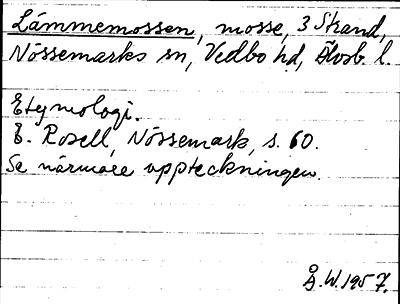 Lämmemossen, mosse, 3 Strand,
Nössemarks sn, Vedbo hd, Älvsb. l.
Etymologi.
E. Rosell, Nössemark, s. 60.
Se närmare uppteckningen.
Å.W. 1957.